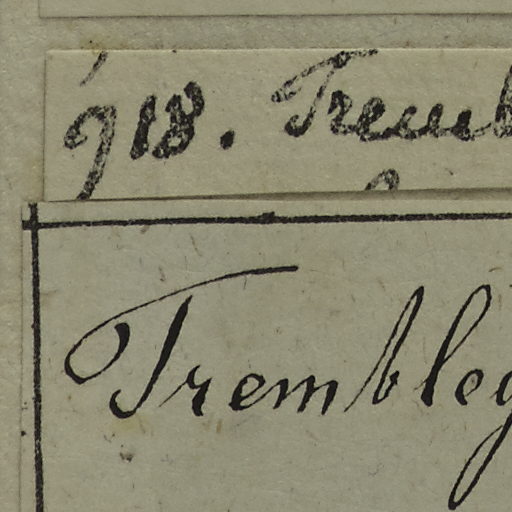 918. Tremb
Trembley